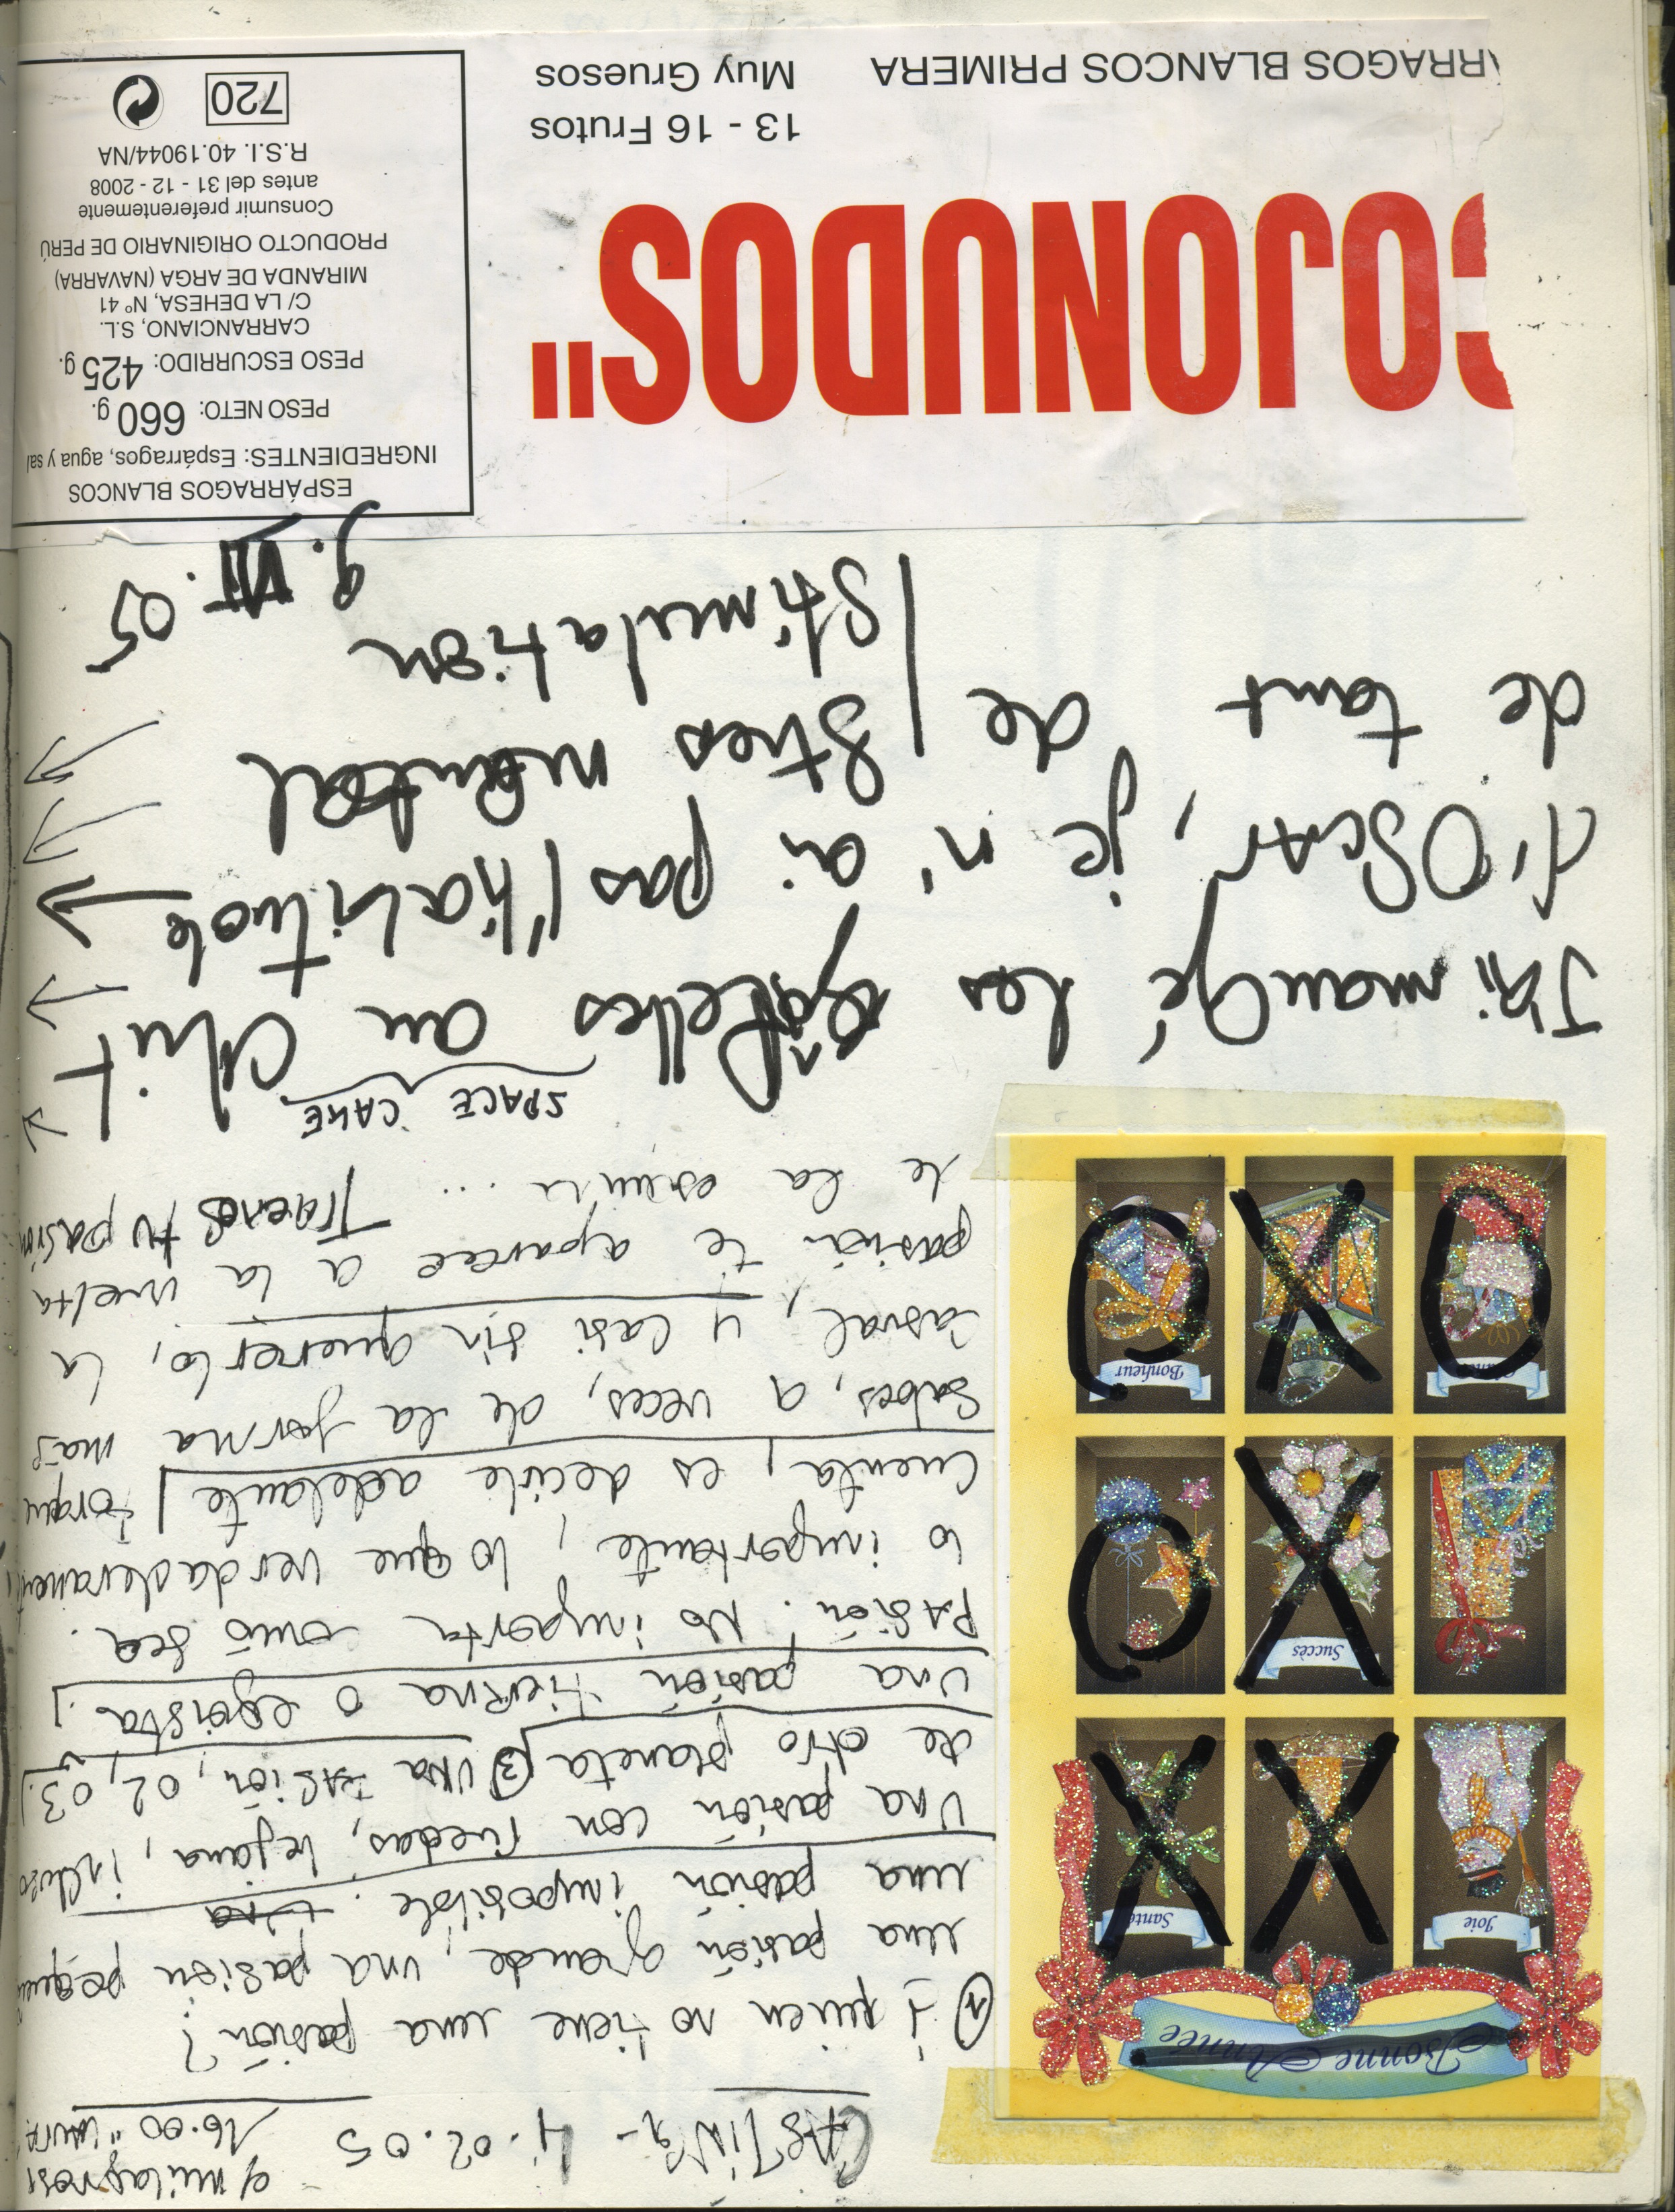 CASTING - 4.02.05
c/ milagrosa
16.00 "LAURA"
① ¿ quien no tiene una pasión?
una pasión grande, una pasión
una pasión imposible. Una
Una pasión con ruedas, lejana, incluso
de otro planeta ③ UNA PASión, 02, 03.
una pasión tierna o egoista.
PASión. No importa sea.
lo importante, lo que verdaderament
cuenta, es decirle adelante porqu
sabes, a veces, de la forma mas
casual, y casi sin quererlo, la
pasión te aparece a la vuelta
de la esquina ... Traenos tu pasión
Bonne Année
Joie
Santé
Succès
Bonheur
SPACE CAKE
J'ai mangé les au
d'OSCAR, je n'ai pas l'habitude
de tant de Stres mental
Stimulation
9.VII.05
ESPÁRRAGOS BLANCOS
INGREDIENTES: Espárragos, agua y sal
PESO NETO: 660 g.
PESO ESCURRIDO: 425 g.
CARRANCIANO, S.L.
C/ LA DEHESA, Nº 41
MIRANDA DE ARGA (NAVARRA)
PRODUCTO ORIGINARIO DE PERÚ
Consumir preferentemente
antes del 31 - 12 - 2008
R.S.I. 40.19044/NA
720
COJONUDOS"
13 - 16 Frutos
Muy Gruesos
RRAGOS BLANCOS PRIMERA